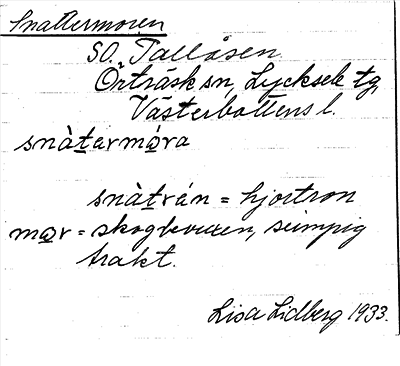 Snattermoren
SO. Tallåsen
Örträsk sn, Lycksele tg,
Västerbottens l.
snàtarmóra
snàtrán = hjortron
mor = skogbevuxen, sumpig
trakt.
Lisa Lidberg 1933.